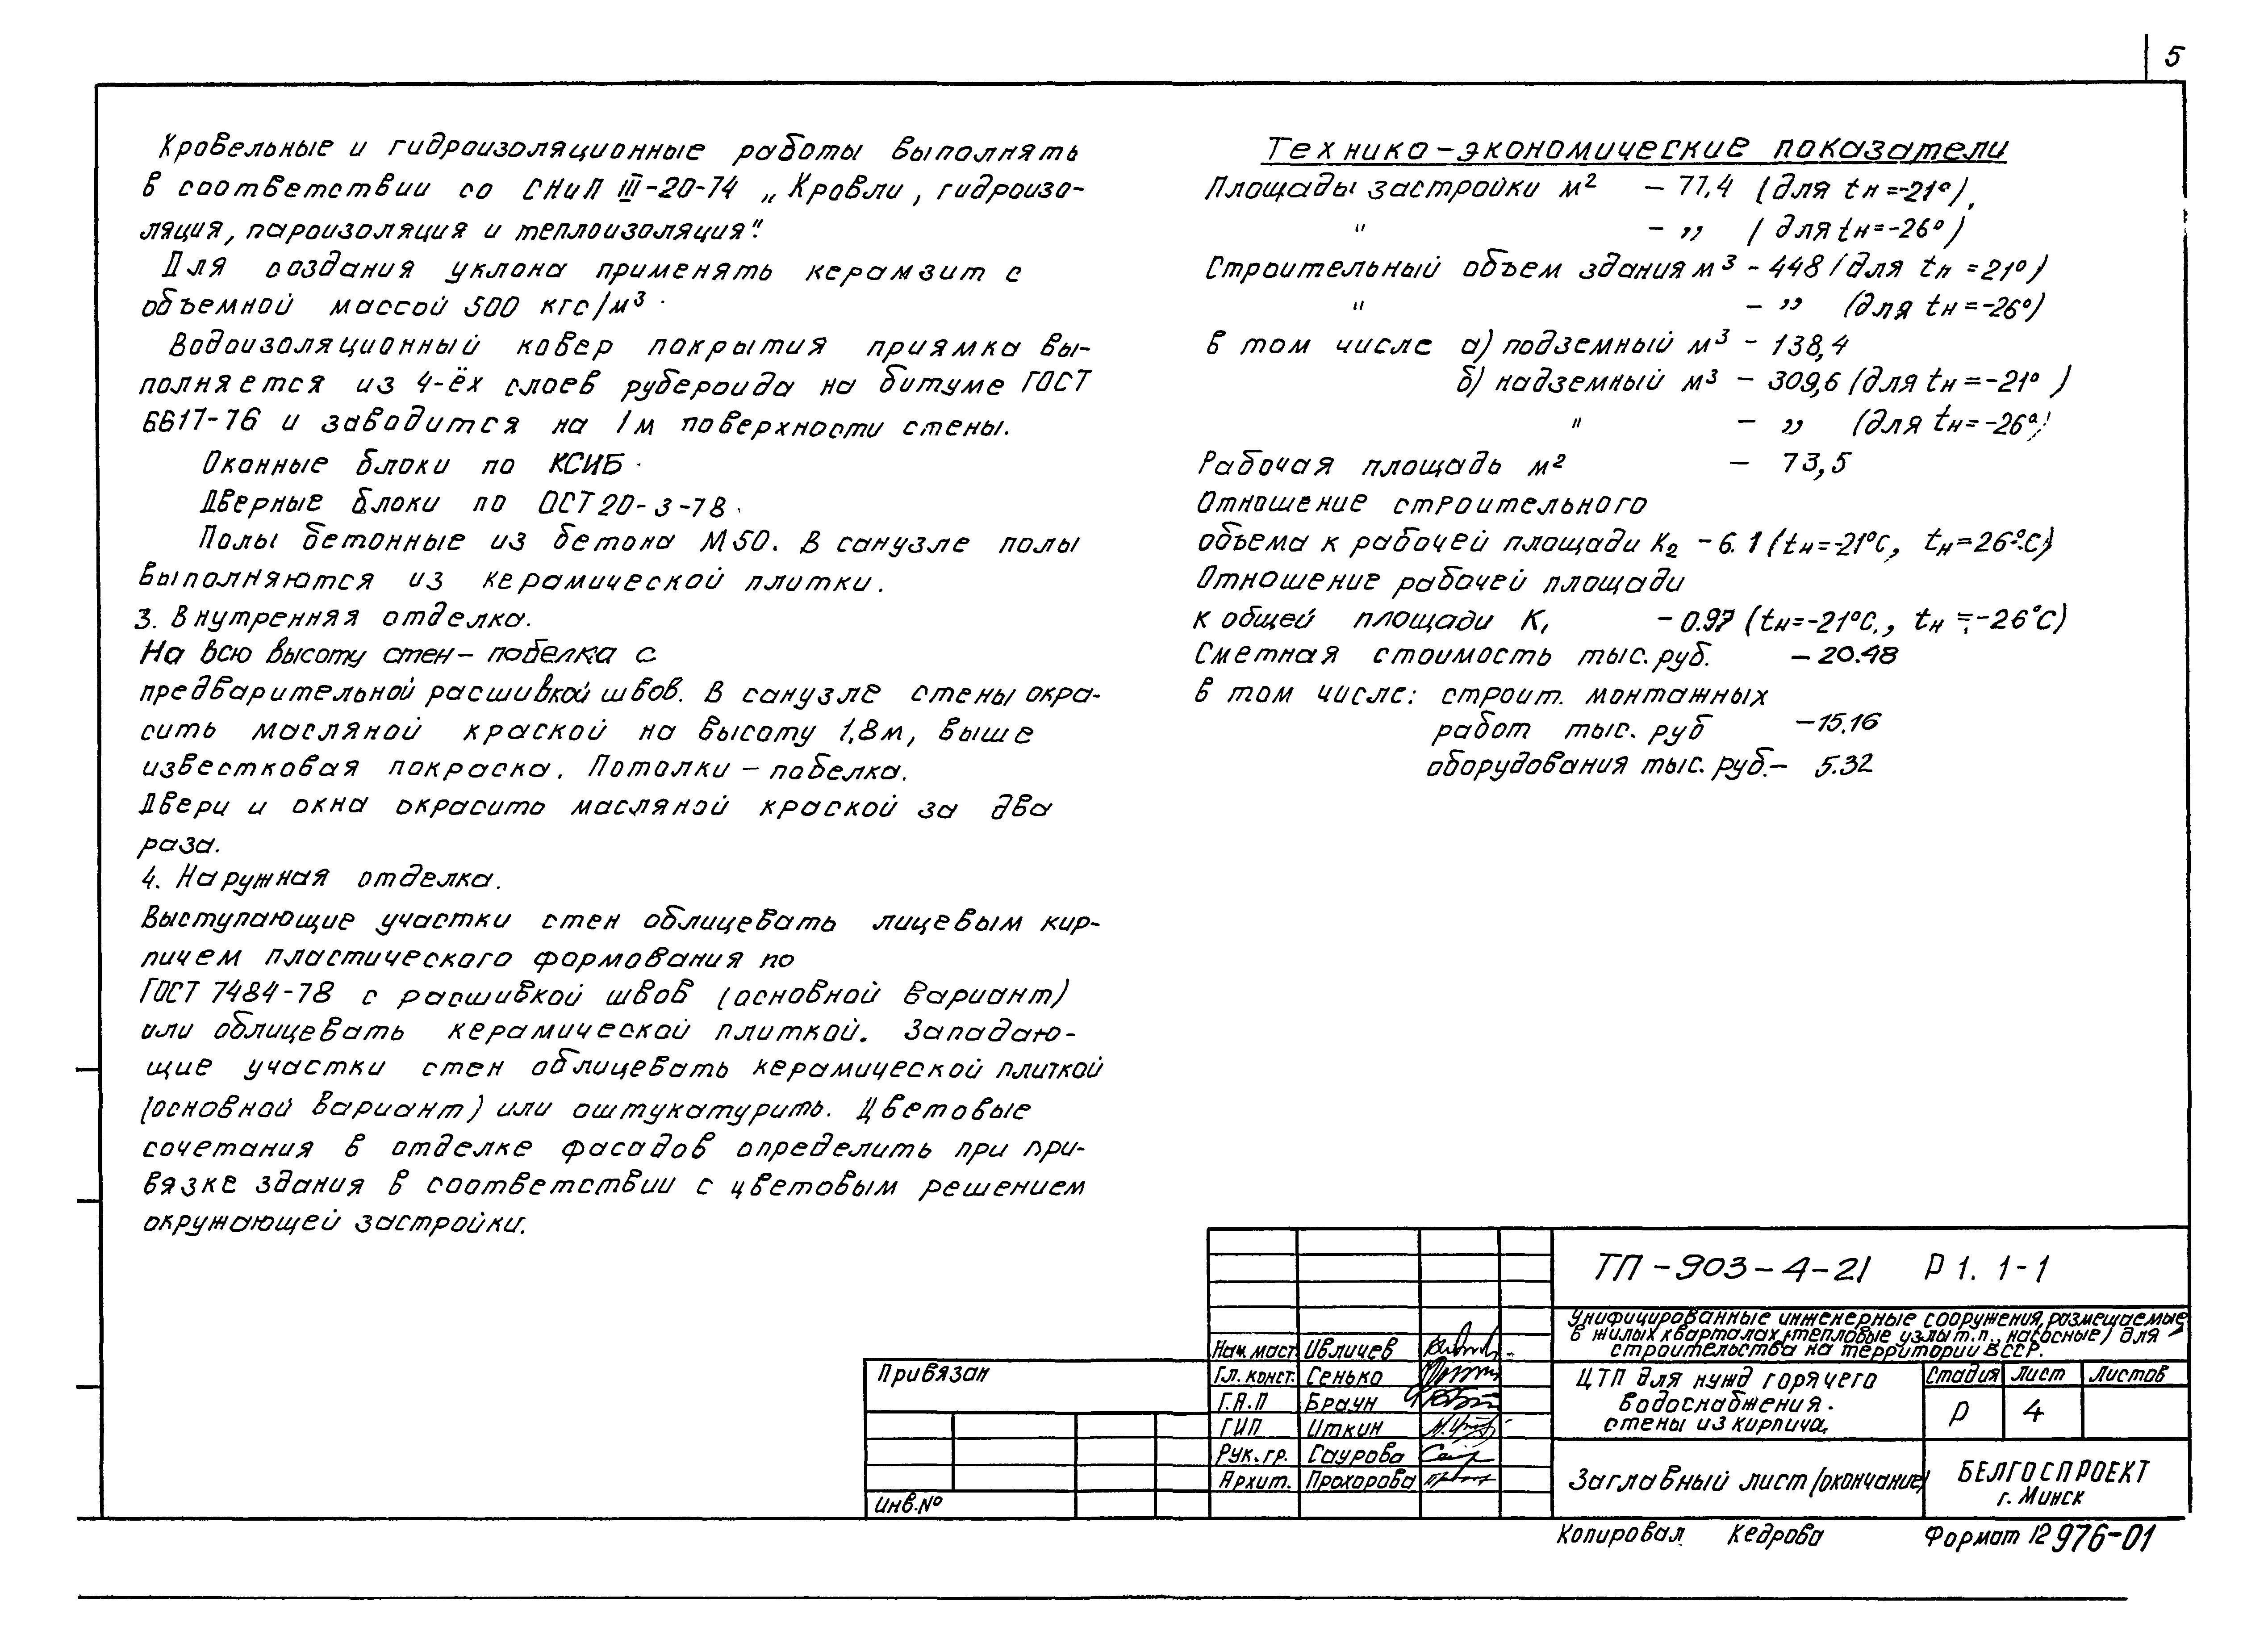 5
Кровельные и гидроизоляционные работы выполнять
в соответствии со СНиП III-20-74 „Кровли, гидроизо-
ляция, пароизоляция и теплоизоляция".
Для создания уклона применять керамзит с
объемной массой 500 кгс/м³.
Водоизоляционный ковер покрытия приямка вы-
полняется из 4-ёх слоев рубероида на битуме ГОСТ
6617-76 и заводится на 1м поверхности стены.
Оконные блоки по КСИБ.
Дверные блоки по ОСТ 20-3-78.
Полы бетонные из бетона М50. В санузле полы
выполняются из керамической плитки.
3. Внутренняя отделка.
На всю высоту стен - побелка с
предварительной расшивкой швов. В санузле стены окра-
сить масляной краской на высоту 1,8м, выше
известковая покраска. Потолки - побелка.
Двери и окна окрасить масляной краской за два
раза.
4. Наружная отделка.
Выступающие участки стен облицевать лицевым кир-
пичем пластического формования по
ГОСТ 7484-78 с расшивкой швов (основной вариант)
или облицевать керамической плиткой. Западаю-
щие участки стен облицевать керамической плиткой
(основной вариант) или оштукатурить. Цветовые
сочетания в отделке фасадов определить при при-
вязке здания в соответствии с цветовым решением
окружающей застройки.
Технико-экономические показатели
Площады застройки м² - 77,4 (для tн=-21°),
" - „ (для tн=-26°)
Строительный объем здания м³ - 448 (для tн =21°)
" - „ (для tн=-26°)
в том числе а) подземный м³ - 138,4
б) надземный м³ - 309,6 (для tн=-21°)
" - „ (для tн=-26°)
Рабочая площадь м² - 73,5
Отношение строительного
объема к рабочей площади К₂ - 6.1 (tн=-21°С, tн=26°С)
Отношение рабочей площади
к общей площади К₁ - 0.97 (tн=-21°С., tн =-26°С)
Сметная стоимость тыс. руб. - 20.48
в том числе: строит. монтажных
работ тыс. руб - 15.16
оборудования тыс. руб. - 5.32
ТП-903-4-21 Р 1. 1-1
Унифицированные инженерные сооружения, размещаемые
в жилых кварталах (тепловые узлы т.п., насосные) для
строительства на территории БССР.
Нач. маст. Ивличев
Гл. конст. Сенько
Г.А.П Браун
ГИП Иткин
Рук. гр. Саурова
Архит. Прохорова
Привязан
Инв. №
ЦТП для нужд горячего
водоснабжения.
стены из кирпича.
Стадия Лист Листов
Р 4
Заглавный лист (окончание)
БЕЛГОСПРОЕКТ
г. Минск
Копировал Кедрова Формат 12 976-01